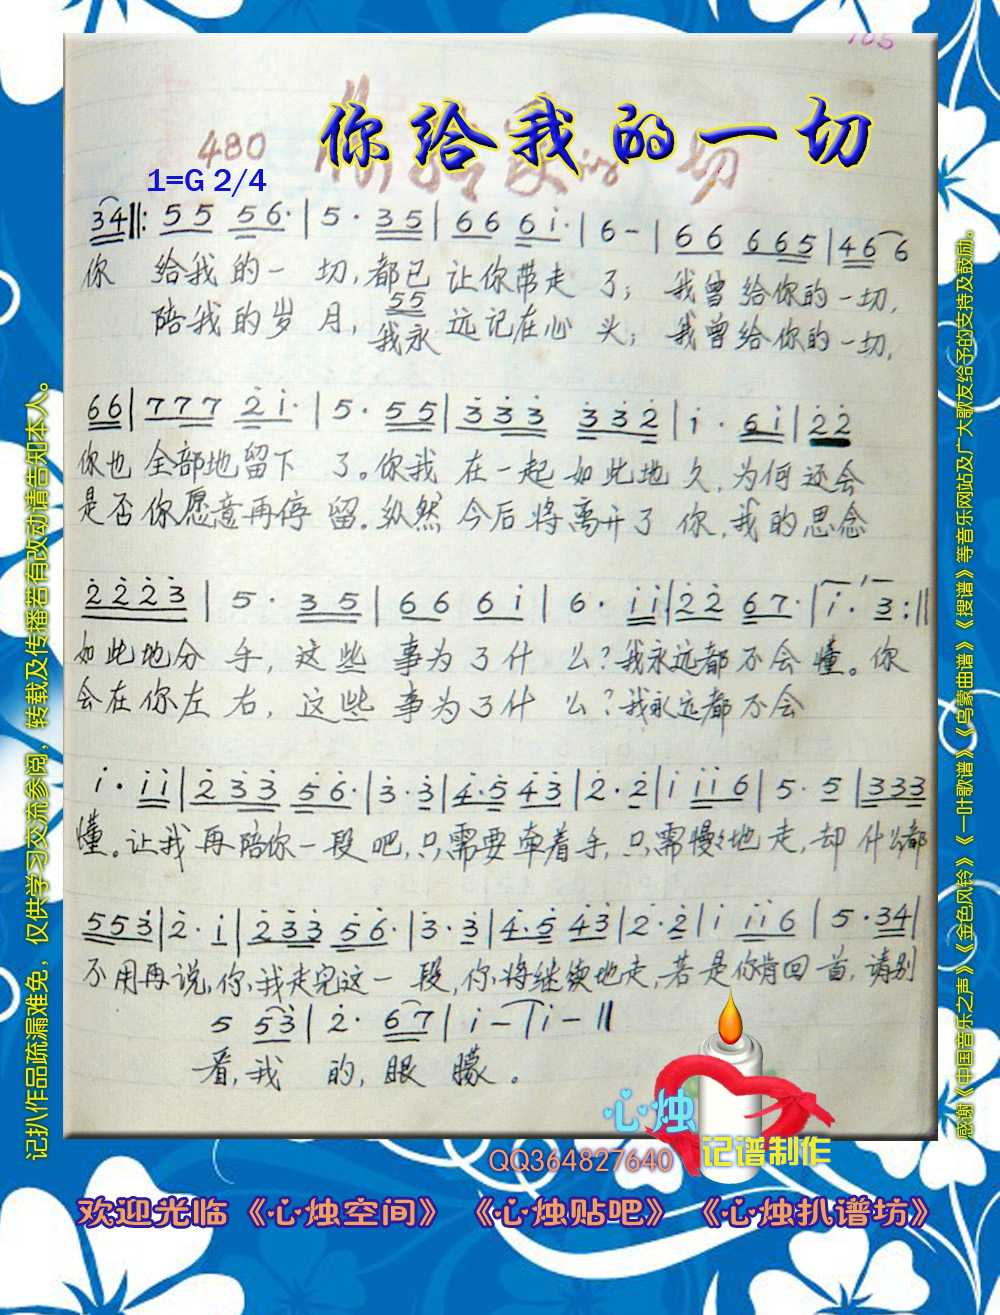 105
你给我的一切
480
1=G 2/4
34‖: 55 56· | 5· 35 | 66 6i· | 6 - | 66 665 | 46 6
你 给我的一 切,都已 让你带走 了; 我曾给你的一切,
55
陪我的岁 月, 我永 远记在心 头; 我曾给你的一切,
66 | 777 2i· | 5· 55 | 333 332 | i· 6i | 22
你也 全部地留下 了。你我 在一起如此地 久,为何还会
是否你愿意再停 留。纵然 今后将离开了 你,我的思念
2223 | 5· 35 | 66 6i | 6· ii | 22 67· | i· 3 :‖
如此地分 手, 这些 事为了什 么?我永远都不会 懂。你
会在你左 右, 这些 事为了什 么?我永远都不会
i· ii | 233 56· | 3·3 | 4·5 43 | 2·2 | i ii6 | 5·5 | 333
懂。让我再陪你一段吧,只需要牵着手,只需慢々地走,却什么都
553 | 2·i | 233 56· | 3·3 | 4·5 43 | 2·2 | i ii6 | 5·34 |
不用再说,你,我走完这一段,你,将继续地走,若是你肯回首,请别
5 53 | 2· 67 | i - | i - ‖
看,我 的,眼 朦。
心烛
记谱制作
QQ364827640
欢迎光临《心烛空间》《心烛贴吧》《心烛扒谱坊》
记扒作品疏漏难免,仅供学习交流参阅,转载及传播若有改动请告知本人。
感谢《中国音乐之声》《金色风铃》《一叶歌谱》《乌蒙曲谱》《搜谱》等音乐网站及广大歌友给予的支持及鼓励。